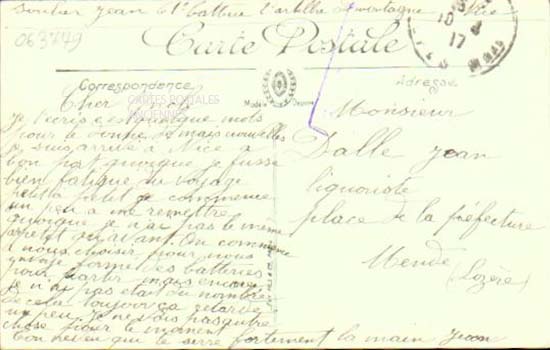 063779
Soutier Jean 61e battrie d'artillerie montagne Nice
Carte Postale
Correspondence
Adresse
CARTES POSTALES
ANCIENNES
10
17
Cher
Je t'écris ces quelque mots
pour te donner de mais nouvelles
je suis arrivé à Nice a
bon port quoique je fusse
bien fatigué du voyage
petit a petit je commence
un peu a me remettre
quoique je n'ai pas le même
apetit qu'avant. On commence
a nous choisir pour nous
forme des batteries
pour partir mais encore
je n'ai pas était du nombre
de celui toujour ça retarde
un peu. Je ne vois pas autre
chose pour le moment
Ton neveu qui te serre fortement la main Jean
Monsieur
Dalle Jean
liquoriste
place de la préfecture
Mende
(Lozère)